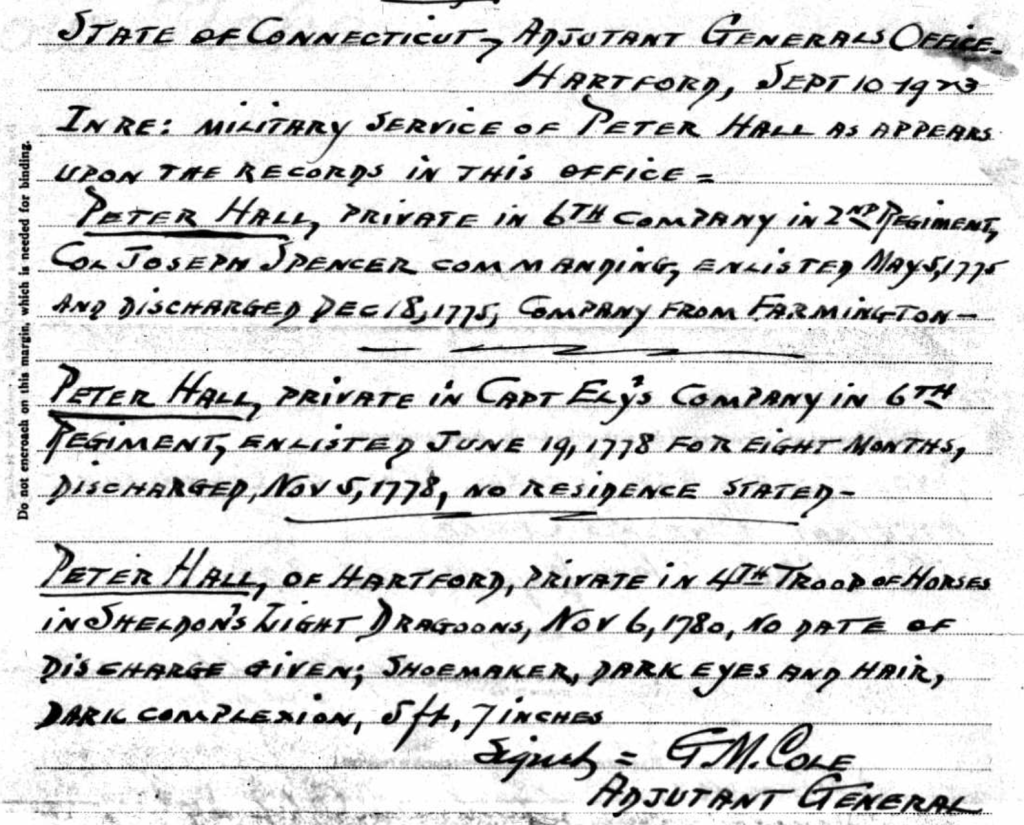 STATE OF CONNECTICUT-, ADJUTANT GENERALS OFFICE-
HARTFORD, SEPT 10-1923
IN RE: MILITARY SERVICE OF PETER HALL AS APPEARS
UPON THE RECORDS IN THIS OFFICE =
PETER HALL, PRIVATE IN 6TH COMPANY IN 2ND REGIMENT,
COL JOSEPH SPENCER COMMANDING, ENLISTED MAY 5, 1775
AND DISCHARGED DEC 18, 1775, COMPANY FROM FARMINGTON-
PETER HALL, PRIVATE IN CAPT ELY'S COMPANY IN 6TH
REGIMENT, ENLISTED JUNE 19, 1778 FOR EIGHT MONTHS,
DISCHARGED, NOV 5, 1778, NO RESIDENCE STATED-
PETER HALL, OF HARTFORD, PRIVATE IN 4TH TROOP OF HORSES
IN SHELDON'S LIGHT DRAGOONS, NOV 6, 1780, NO DATE OF
DISCHARGE GIVEN; SHOEMAKER, DARK EYES AND HAIR,
DARK COMPLEXION, 5 ft, 7 INCHES
Signed = G.M. COLE
ADJUTANT GENERAL
Do not encroach on this margin, which is needed for binding.